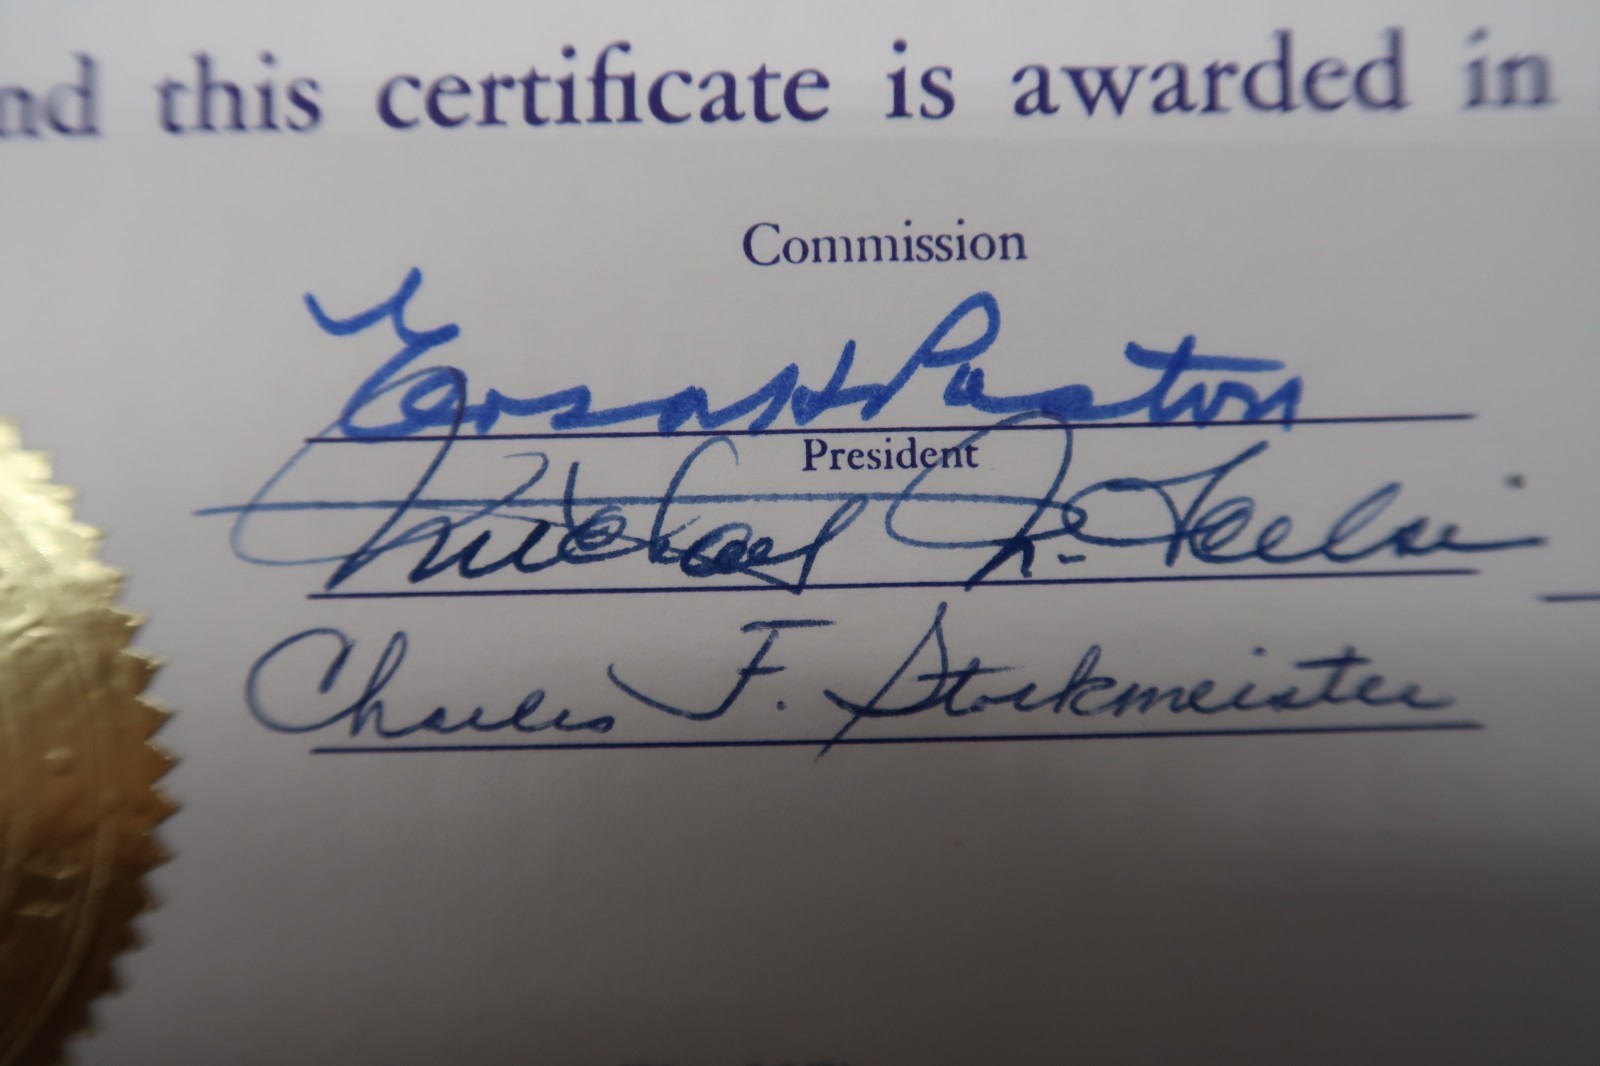 nd this certificate is awarded in
Commission
Ersa H Poston
President
Michael N. Scelsi
Charles F. Stockmeister